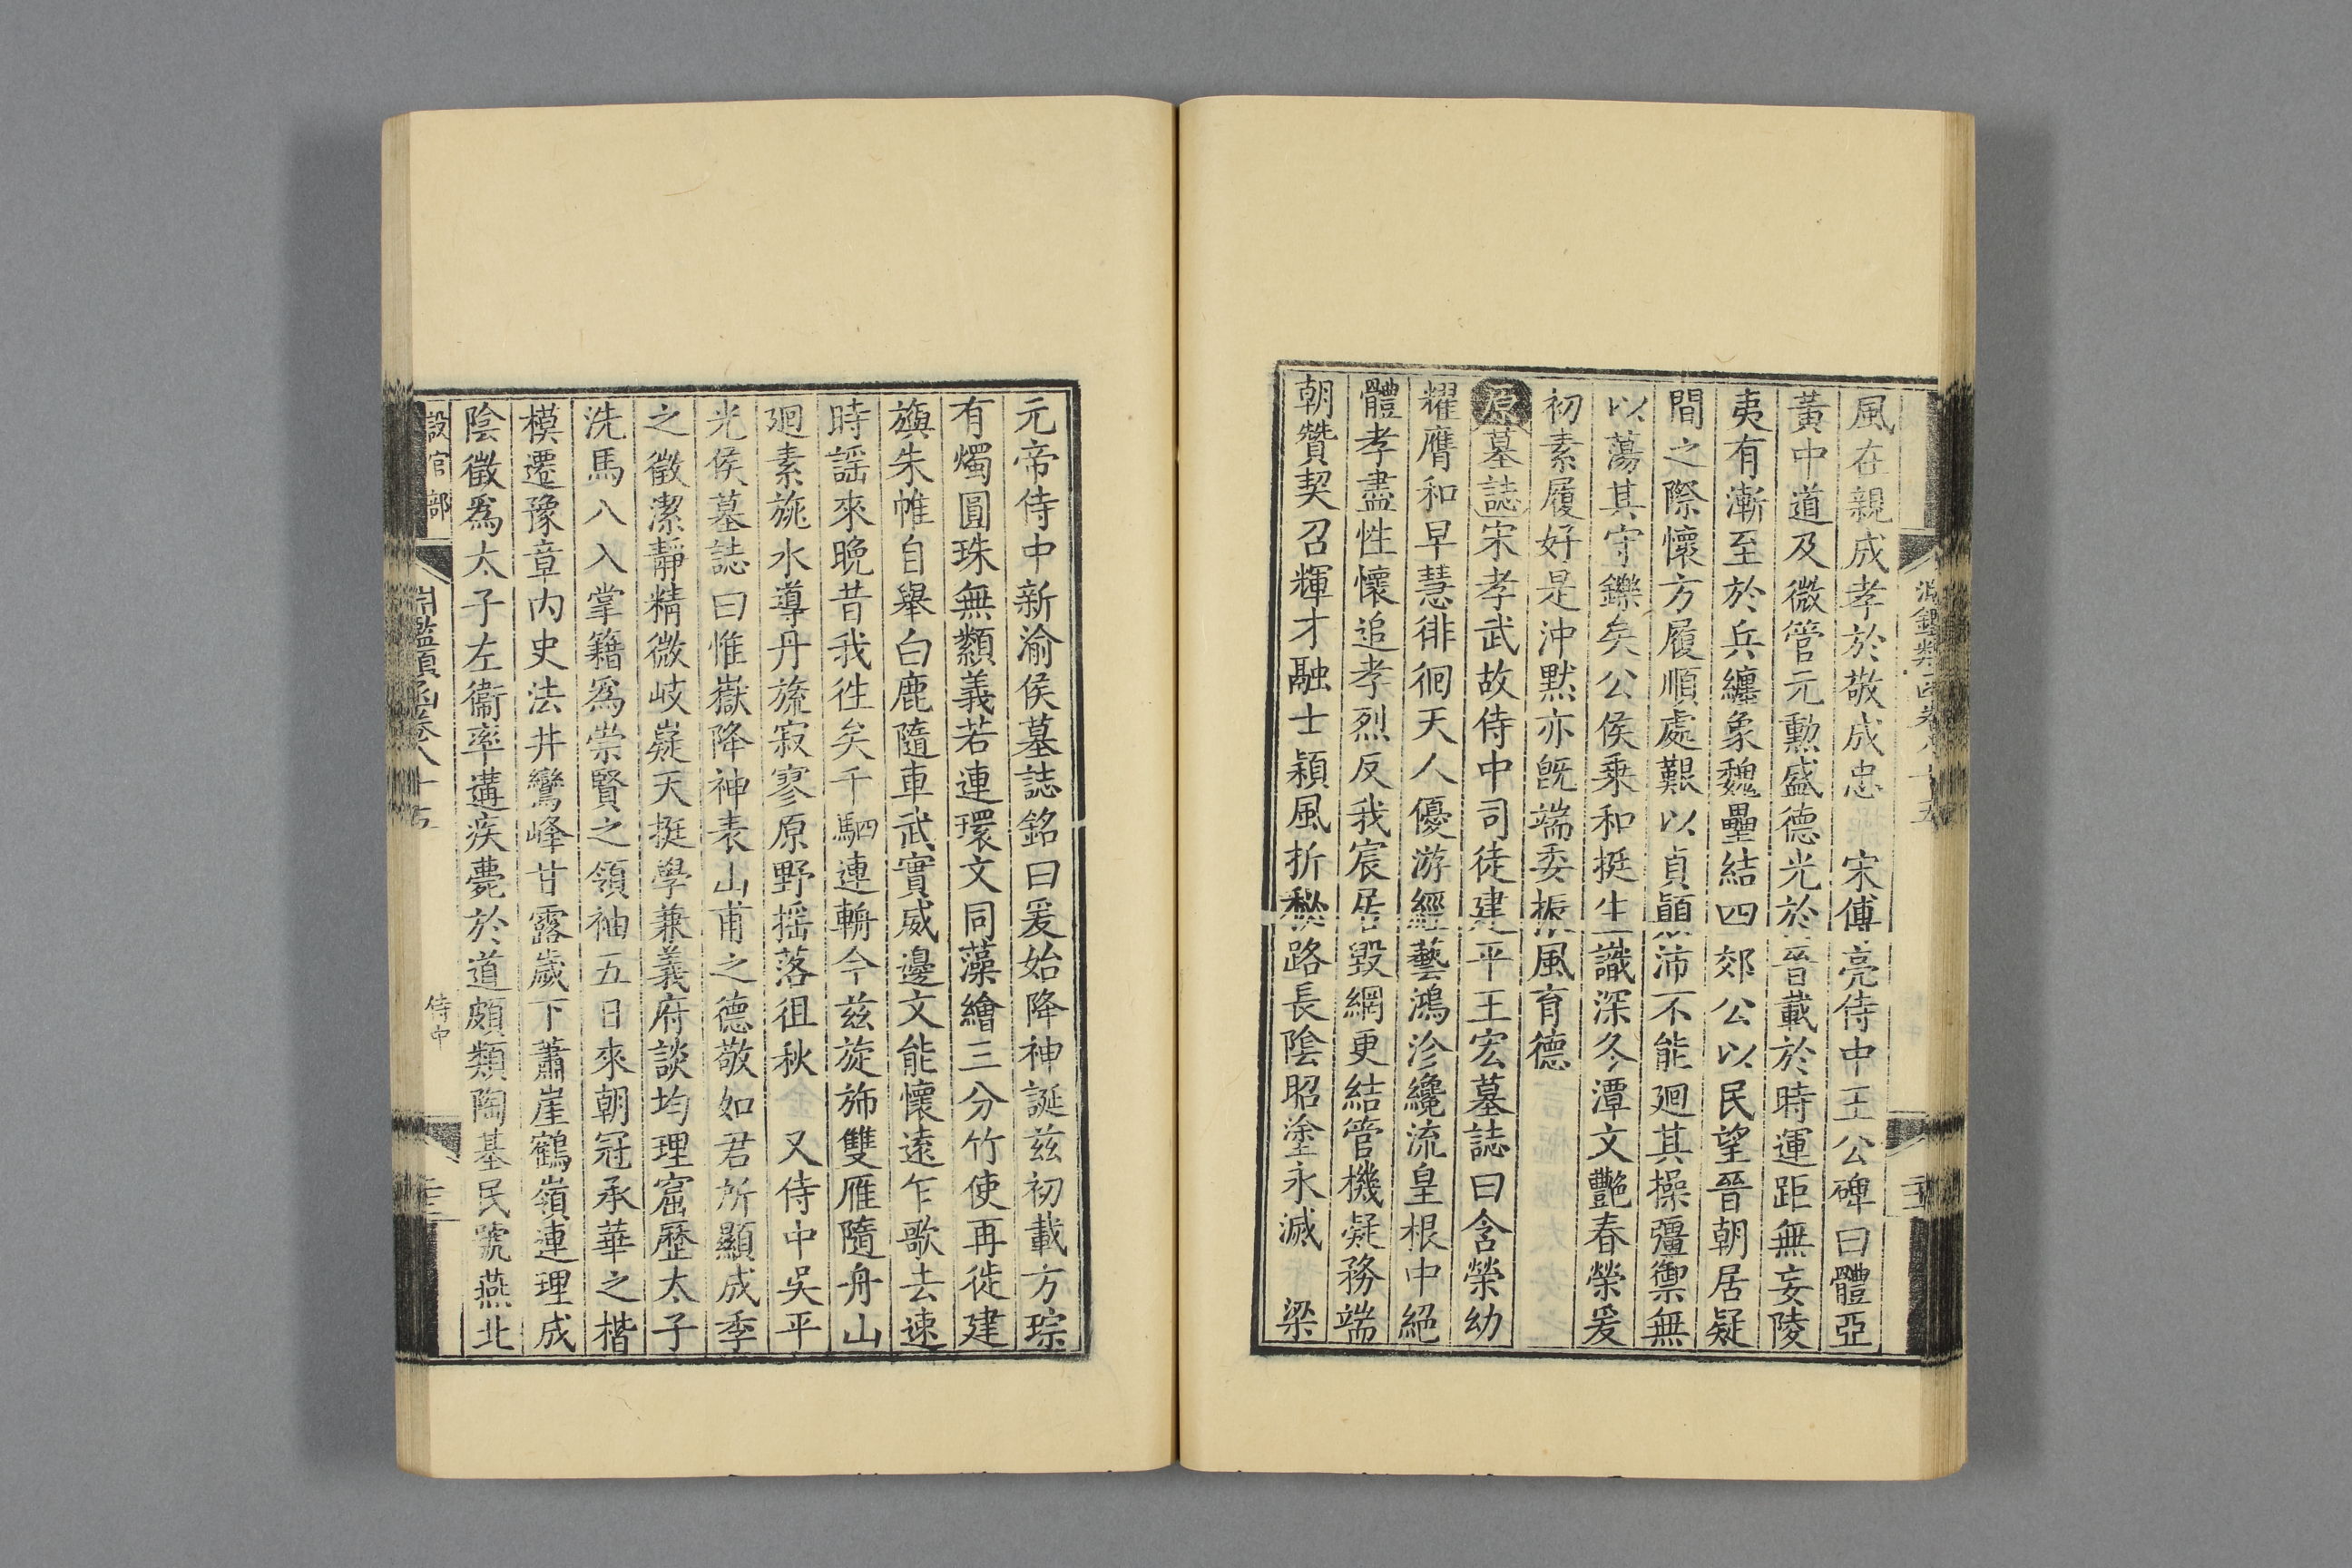 風在親成孝於敬成忠　宋傅亮侍中王公碑曰體亞
黃中道及微管元勳盛德光於晉載於時運距無妄陵
夷有漸至於兵纏象魏壘結四郊公以民望晉朝居疑
間之際懷方履順處艱以貞顚沛不能廻其操彊禦無
以蕩其守鑠矣公侯乗和挺生識深夂潭文艷春榮爰
初素履好是沖默亦旣端委振風育德
原墓誌宋孝武故侍中司徒建平王宏墓誌曰含榮幼
耀膺和早慧徘徊天人優游經藝鴻沴纔流皇根中絕
體孝盡性懷追孝烈反我宸居毀綱更結管機疑務端
朝贊契召輝才融士穎風折愁路長陰昭塗永滅　梁
元帝侍中新渝侯墓誌銘曰爰始降神誕兹初載方琮
有燭圓珠無纇義若連環文同藻繪三分竹使再徙建
旟朱帷自舉白鹿隨車武實威邊文能懷逺乍歌去速
時謡來晚昔我徃矣千駟連輈今兹旋斾雙雁隨舟山
廻素旐水導丹旒寂寥原野揺落徂秋　又侍中吳平
光侯墓誌曰惟嶽降神表山甫之德敬如君所顯成季
之徵潔靜精微岐嶷天挺學兼義府談均理窟歷太子
洗馬八入掌籍爲崇賢之領袖五日來朝冠承華之楷
模遷豫章內史法井鸞峰甘露歲下蕭崖鶴嶺連理成
陰徵爲太子左衞率遘疾薨於道頗類陶基民號燕北
設官部
淵鑑類函卷八十五
侍中